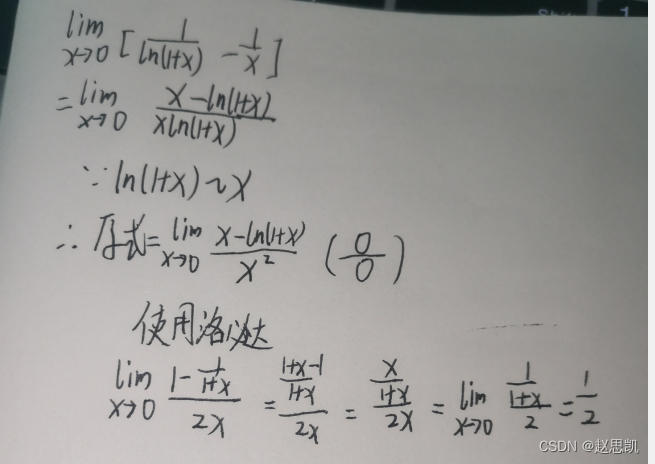 lim x→0 [ 1/ln(1+x) - 1/x ]
= lim x→0 (x-ln(1+x))/(xln(1+x))
∵ ln(1+x)~x
∴ 原式= lim x→0 (x-ln(1+x))/x² (0/0)
使用洛必达
lim x→0 (1-1/(1+x))/(2x) = ((1+x-1)/(1+x))/(2x) = (x/(1+x))/(2x) = lim x→0 (1/(1+x))/2 = 1/2
CSDN @赵思凯